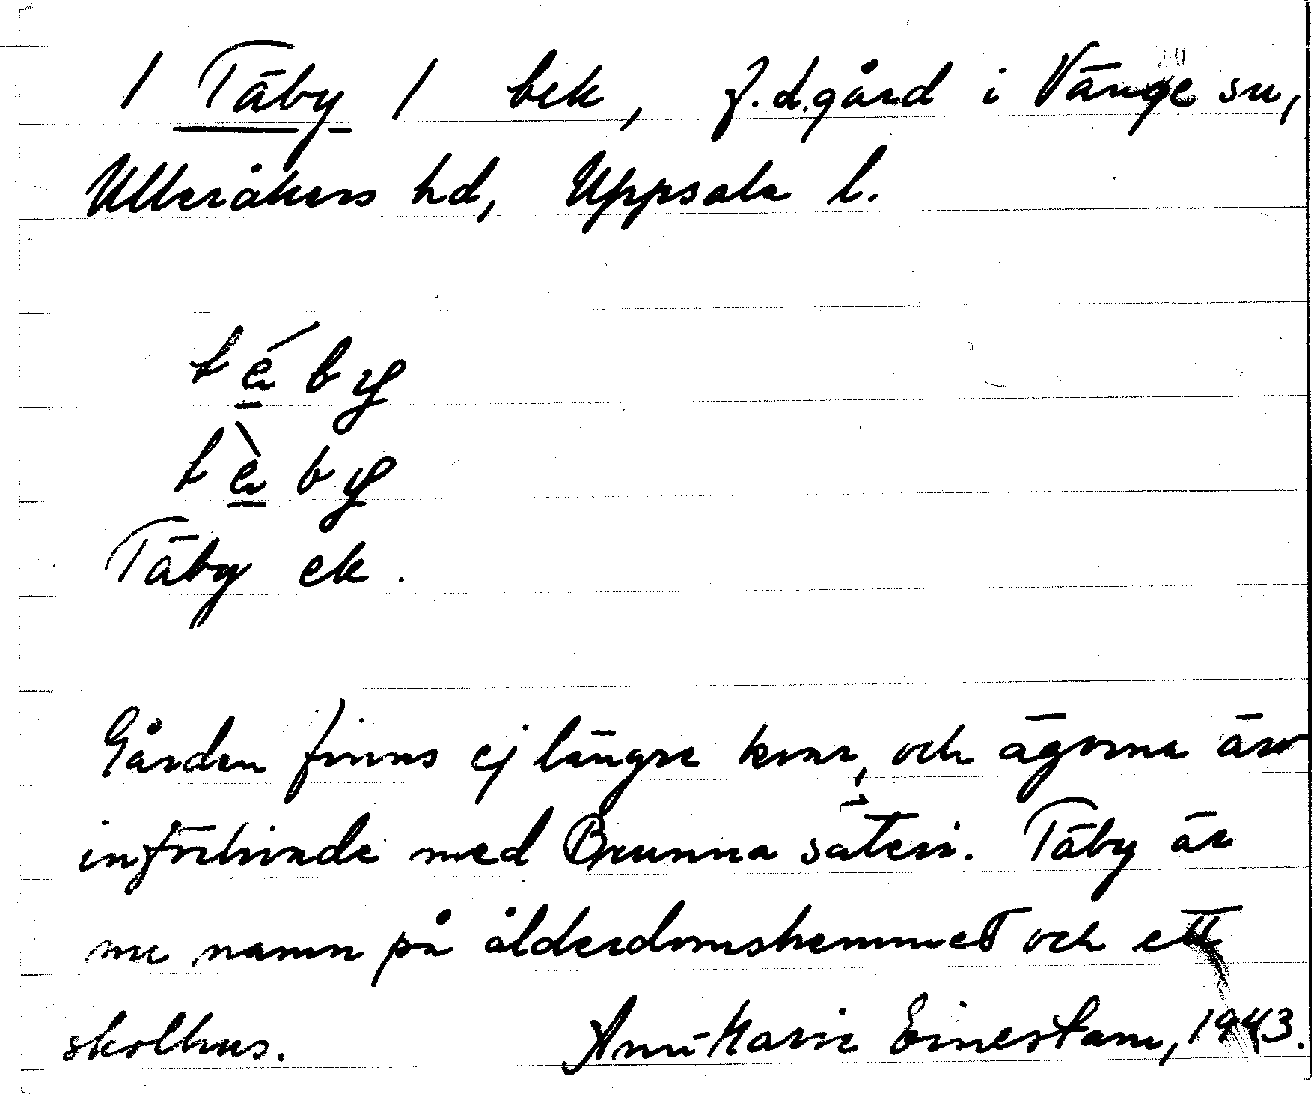 / Täby / bek, f.d.gård i Vänge sn,
Ulleråkers hd, Uppsala l.
Täby ek.
Gården finns ej längre kvar, och ägorna äro
införlivade med Brunna säteri. Täby är
nu namn på ålderdomshemmet och ett
skolhus. Ann-Marie Einestam, 1943.